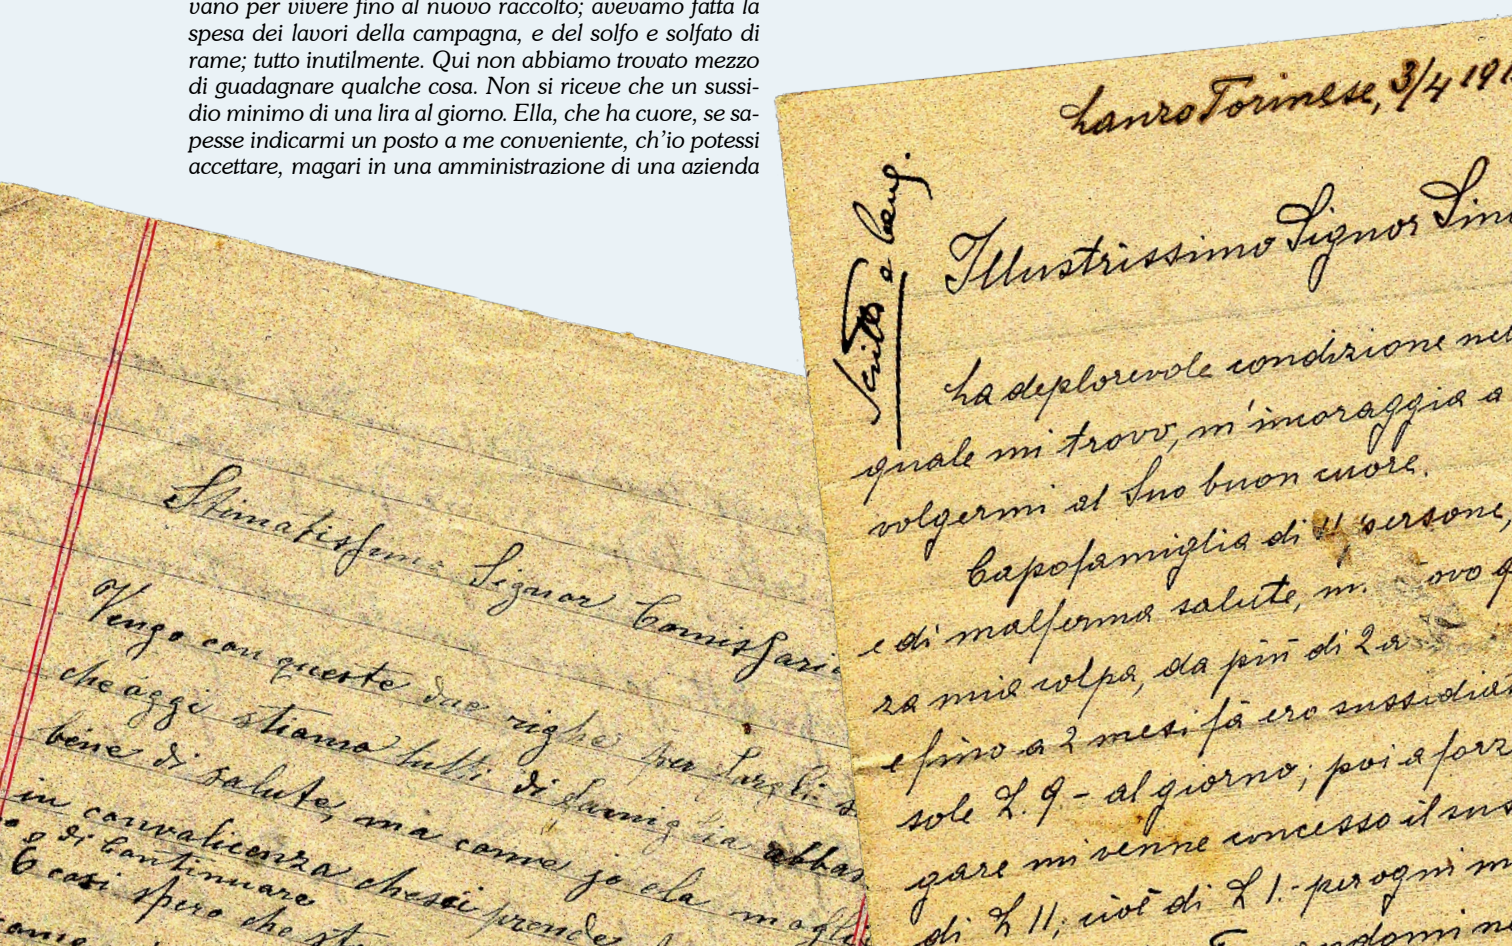 vano per vivere fino al nuovo raccolto; avevamo fatta la
spesa dei lavori della campagna, e del solfo e solfato di
rame; tutto inutilmente. Qui non abbiamo trovato mezzo
di guadagnare qualche cosa. Non si riceve che un sussi-
dio minimo di una lira al giorno. Ella, che ha cuore, se sa-
pesse indicarmi un posto a me conveniente, ch'io potessi
accettare, magari in una amministrazione di una azienda
Stimatissimo Signor Comissario
Vengo con queste due righe per
che oggi stiamo tutti di famiglia abbas
bene di salute, ma come jo ela moglie
in convalicenza che si prende
o di Continuare
E cosi spero che
Lanzo Torinese, 3/4 191
Illustrissimo Signor Sin
La deplorevole condizione nel
quale mi trovo, m'incoraggia a
volgermi al Suo buon cuore.
Capofamiglia di 11 persone,
e di malferma salute, m. ovo
za mia colpa, da più di 2 a
e fino a 2 mesi fà ero sussidia
sole L. 9 - al giorno; poi a forz
gare mi venne concesso il sus
di L 11; cioè di L 1.- per ogni m
Scritto a